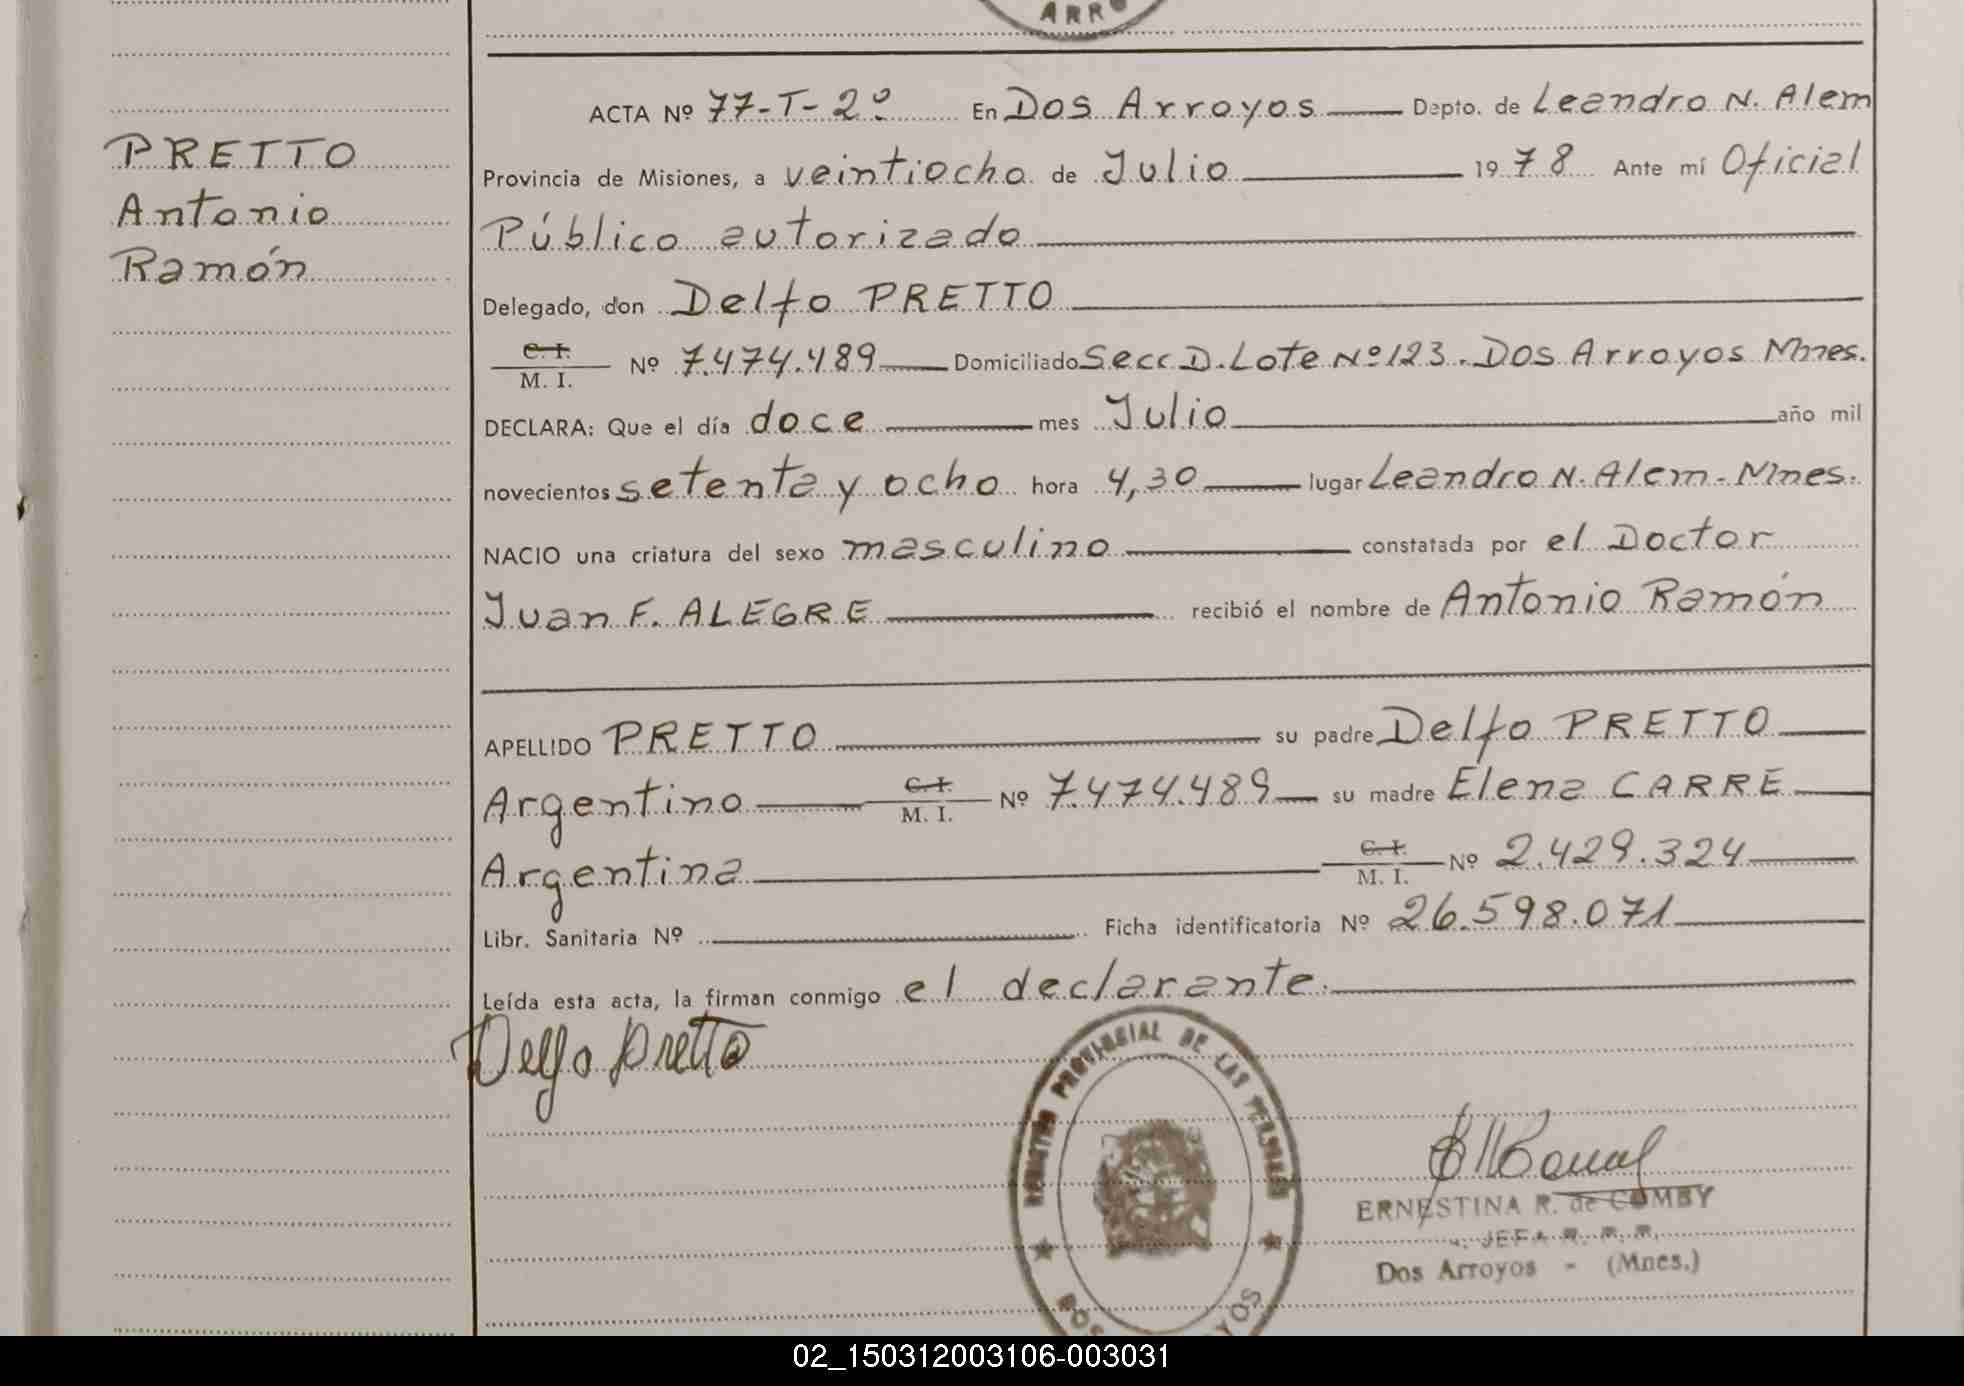 ARRO
ACTA Nº 77-T-2º En Dos Arroyos Depto. de Leandro N. Alem
PRETTO
Antonio
Ramón
Provincia de Misiones, a veintiocho de Julio 1978 Ante mí Oficial
Público autorizado
Delegado, don Delfo PRETTO
C. I.
M. I. Nº 7.474.489 Domiciliado Secc D. Lote Nº 123. Dos Arroyos Mnes.
DECLARA: Que el día doce mes Julio año mil
novecientos setenta y ocho hora 4,30 lugar Leandro N. Alem - Mnes.
NACIO una criatura del sexo masculino constatada por el Doctor
Juan F. ALEGRE recibió el nombre de Antonio Ramón
APELLIDO PRETTO su padre Delfo PRETTO
Argentino C. I. M. I. Nº 7.474.489 su madre Elena CARRE
Argentina C. I. M. I. Nº 2.429.324
Libr. Sanitaria Nº Ficha identificatoria Nº 26.598.071
Leída esta acta, la firman conmigo el declarante.
Delfo Pretto
REGISTRO PROVINCIAL DE LAS PERSONAS
DOS ARROYOS
ERNESTINA R. de COMBY
JEFA R.
Dos Arroyos - (Mnes.)
02_150312003106-003031